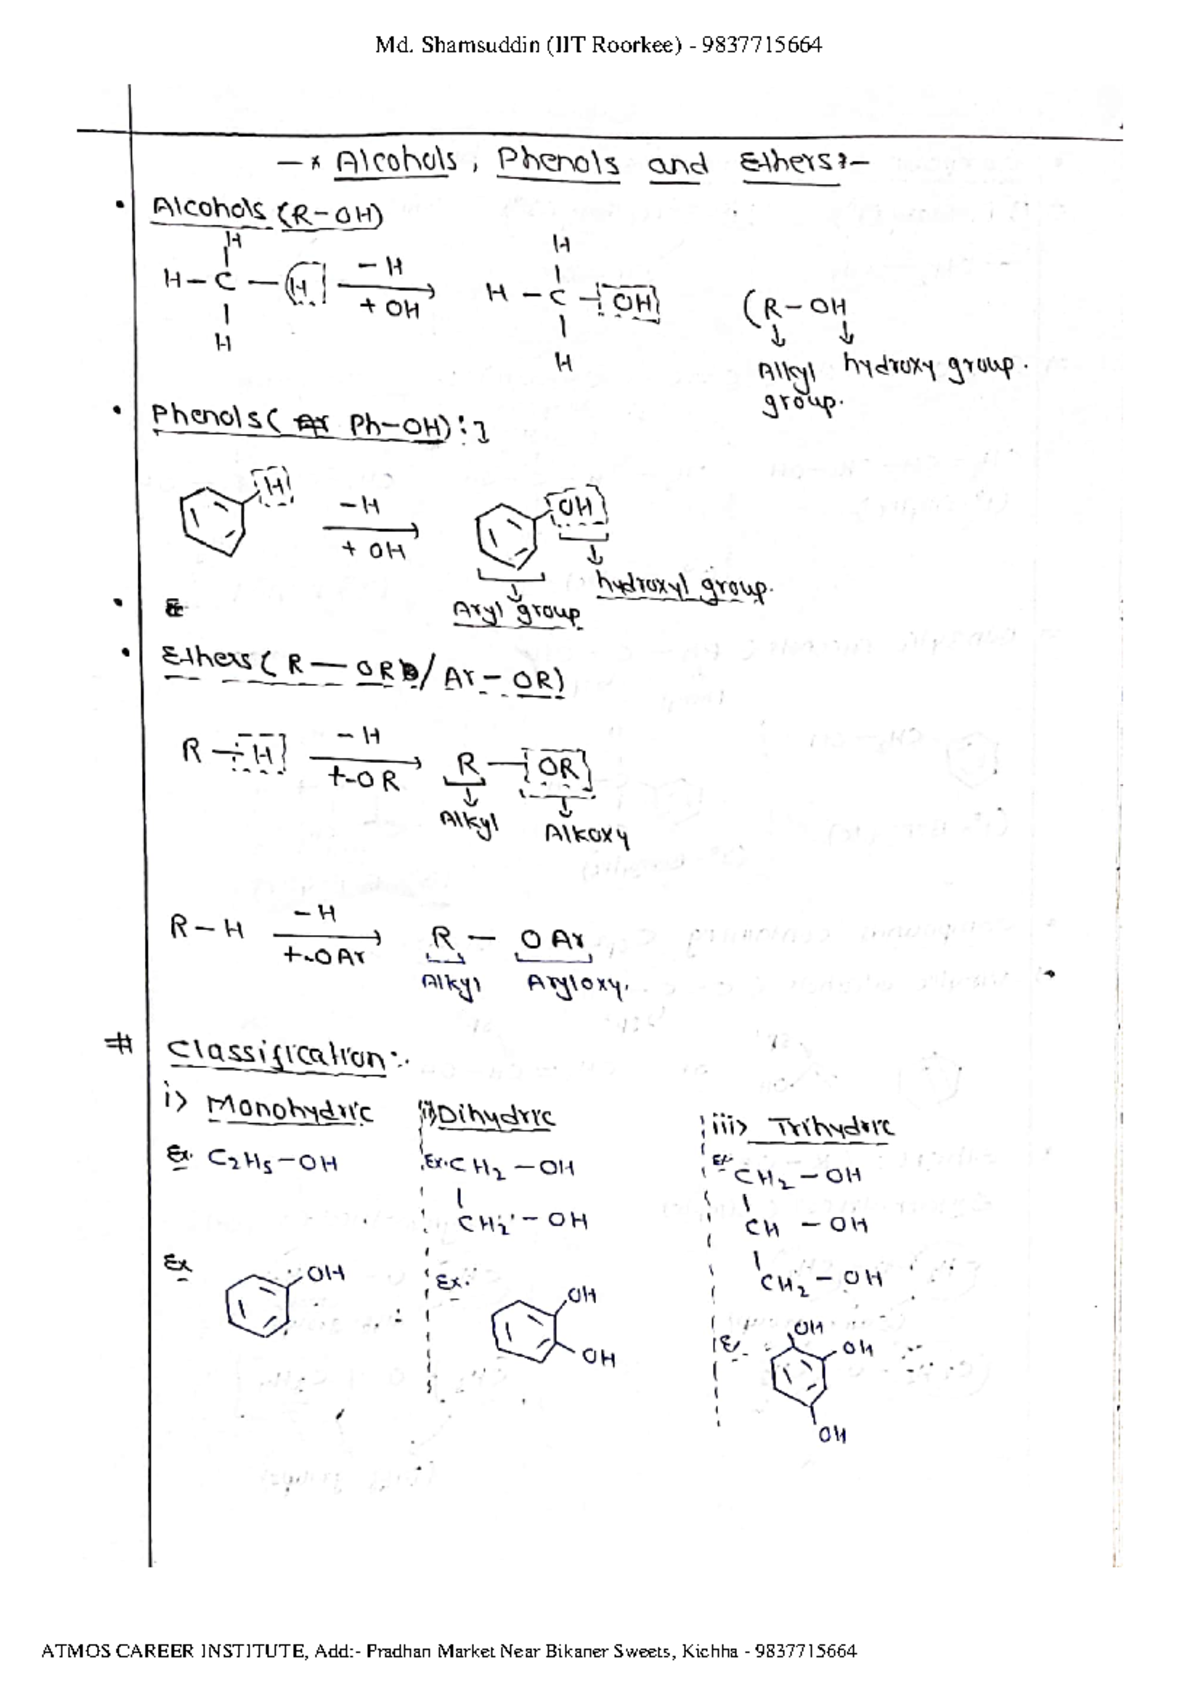 Md. Shamsuddin (IIT Roorkee) - 9837715664
-* Alcohols, Phenols and Ethers:-
• Alcohols (R-OH)
H H
H-C-H -H H-C-OH (R-OH
+ OH
H H
Alkyl hydroxy group.
group.
• Phenols( Ph-OH):]
H -H OH
+ OH
hydroxyl group.
Aryl group
•
• Ethers( R-OR / Ar-OR)
R-H -H R-OR
+-OR
Alkyl Alkoxy
R-H -H R-OAr
+-OAr
Alkyl Aryloxy.
# Classification:-
i> Monohydric ii> Dihydric iii> Trihydric
Ex. C2H5-OH Ex. CH2-OH Ex CH2-OH
CH2-OH CH-OH
CH2-OH
Ex OH Ex. OH OH
OH OH
OH
ATMOS CAREER INSTITUTE, Add:- Pradhan Market Near Bikaner Sweets, Kichha - 9837715664